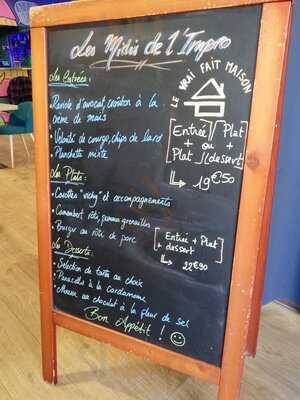 Les Midis de l'Impro
LE VRAI FAIT MAISON
Les Entrées :
Ravide d'avocat, combon à la
crème de maïs
Velouté de courge, chips de lard
Planchette mixte
[Entrée] / Plat
+ ou +
Plat / dessert
19€50
Les Plats :
Carottes "vichy" et accompagnements
Camembert rôti, pommes grenailles
Burger au rôti de porc
[Entrée + Plat
+ dessert]
22€90
Les Desserts :
Sélection de tartes au choix
Panacotta à la cardamome
Mousse au chocolat à la fleur de sel
Bon Appétit !